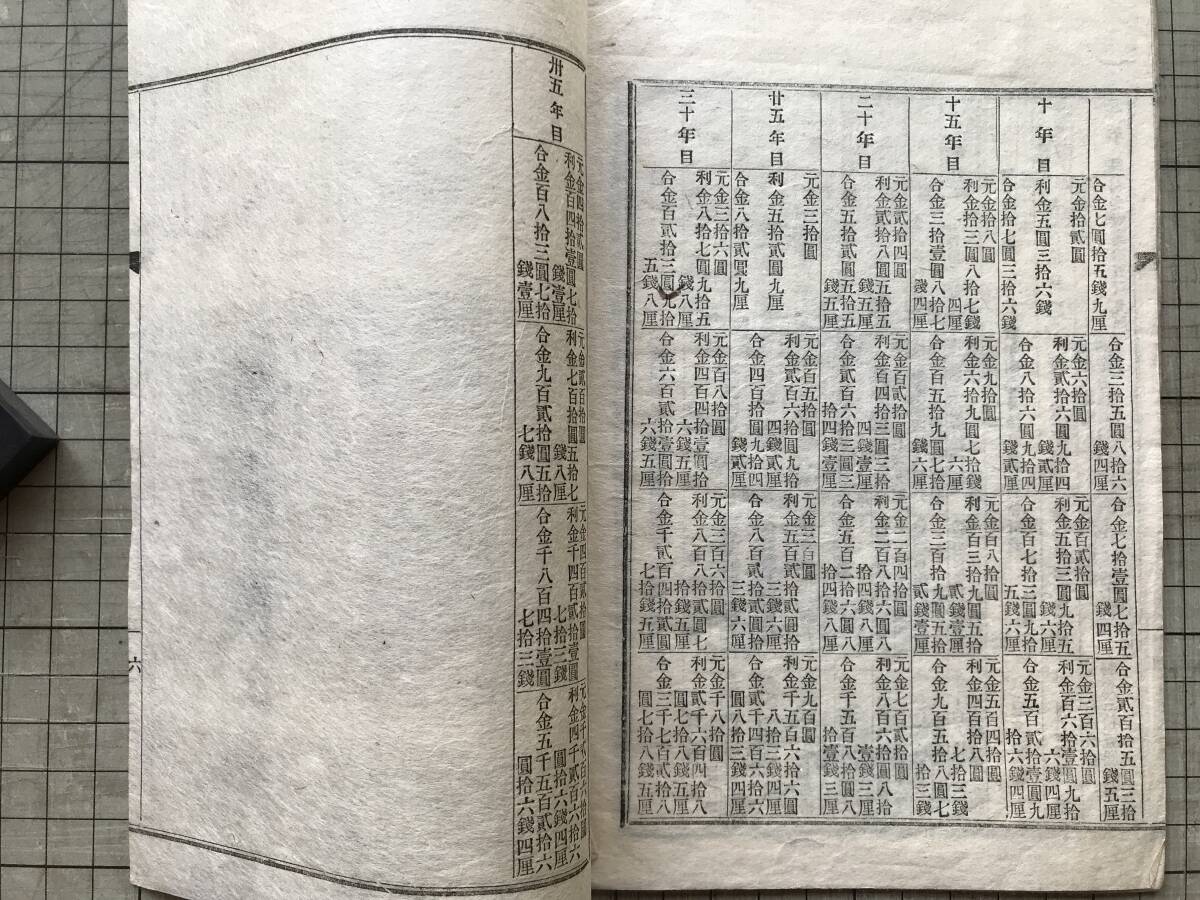 合金七圓拾五錢九厘
合金三拾五圓八拾六
錢四厘
合金七拾壹圓七拾五
錢四厘
合金貳百拾五圓三拾
錢五厘
十年目
元金拾貳圓
利金五圓三拾六錢
合金拾七圓三拾六錢
元金六拾圓
利金貳拾六圓九拾四
錢貳厘
合金八拾六圓九拾四
錢貳厘
元金百貳拾圓
利金五拾三圓九拾五
錢六厘
合金百七拾三圓九拾
五錢六厘
元金三百六拾圓
利金百六拾壹圓九拾
六錢四厘
合金五百貳拾壹圓九
拾六錢四厘
十五年目
元金拾八圓
利金拾三圓八拾七錢
四厘
合金三拾壹圓八拾七
錢四厘
元金九拾圓
利金六拾九圓七拾錢
六厘
合金百五拾九圓七拾
錢六厘
元金百八拾圓
利金百三拾九圓五拾
貳錢壹厘
合金三百拾九圓五拾
貳錢壹厘
元金五百四拾圓
利金四百拾八圓
七拾三錢
合金九百五拾八圓七
拾三錢
二十年目
元金貳拾四圓
利金貳拾八圓五拾五
錢五厘
合金五拾貳圓五拾五
錢五厘
元金百貳拾圓
利金百四拾三圓三拾
四錢壹厘
合金貳百六拾三圓三
拾四錢壹厘
元金二百四拾圓
利金二百八拾六圓八
拾四錢八厘
合金五百二拾六圓八
拾四錢八厘
元金七百貳拾圓
利金八百六拾圓八拾
壹錢三厘
合金千五百八拾圓八
拾壹錢三厘
廿五年目
元金三拾圓
利金五拾貳圓九厘
合金八拾貳圓九厘
元金百五拾圓
利金貳百六拾圓九拾
四錢貳厘
合金四百拾圓九拾四
錢貳厘
元金三百圓
利金五百貳拾貳圓拾
三錢六厘
合金八百貳拾貳圓拾
三錢六厘
元金九百圓
利金千五百六拾六圓
八拾三錢四厘
合金貳千四百六拾六
圓八拾三錢四厘
三十年目
元金三拾六圓
利金八拾七圓九拾五
錢八厘
合金百貳拾三圓九拾
五錢八厘
元金百八拾圓
利金四百四拾壹圓拾
六錢五厘
合金六百貳拾壹圓拾
六錢五厘
元金三百六拾圓
利金八百八拾貳圓七
拾錢五厘
合金千貳百四拾貳圓
七拾錢五厘
元金千八拾圓
利金貳千六百四拾八
圓七拾八錢五厘
合金三千七百貳拾八
圓七拾八錢五厘
卅五年目
元金四拾貳圓
利金百四拾壹圓七拾
錢壹厘
合金百八拾三圓七拾
錢壹厘
元金貳百拾圓
利金七百拾圓五拾七
錢八厘
合金九百貳拾圓五拾
七錢八厘
元金四百貳拾圓
利金千四百貳拾壹圓
七拾三錢
合金千八百四拾壹圓
七拾三錢
元金千貳百六拾圓
利金四千貳百六拾六
圓拾六錢四厘
合金五千五百貳拾六
圓拾六錢四厘
六